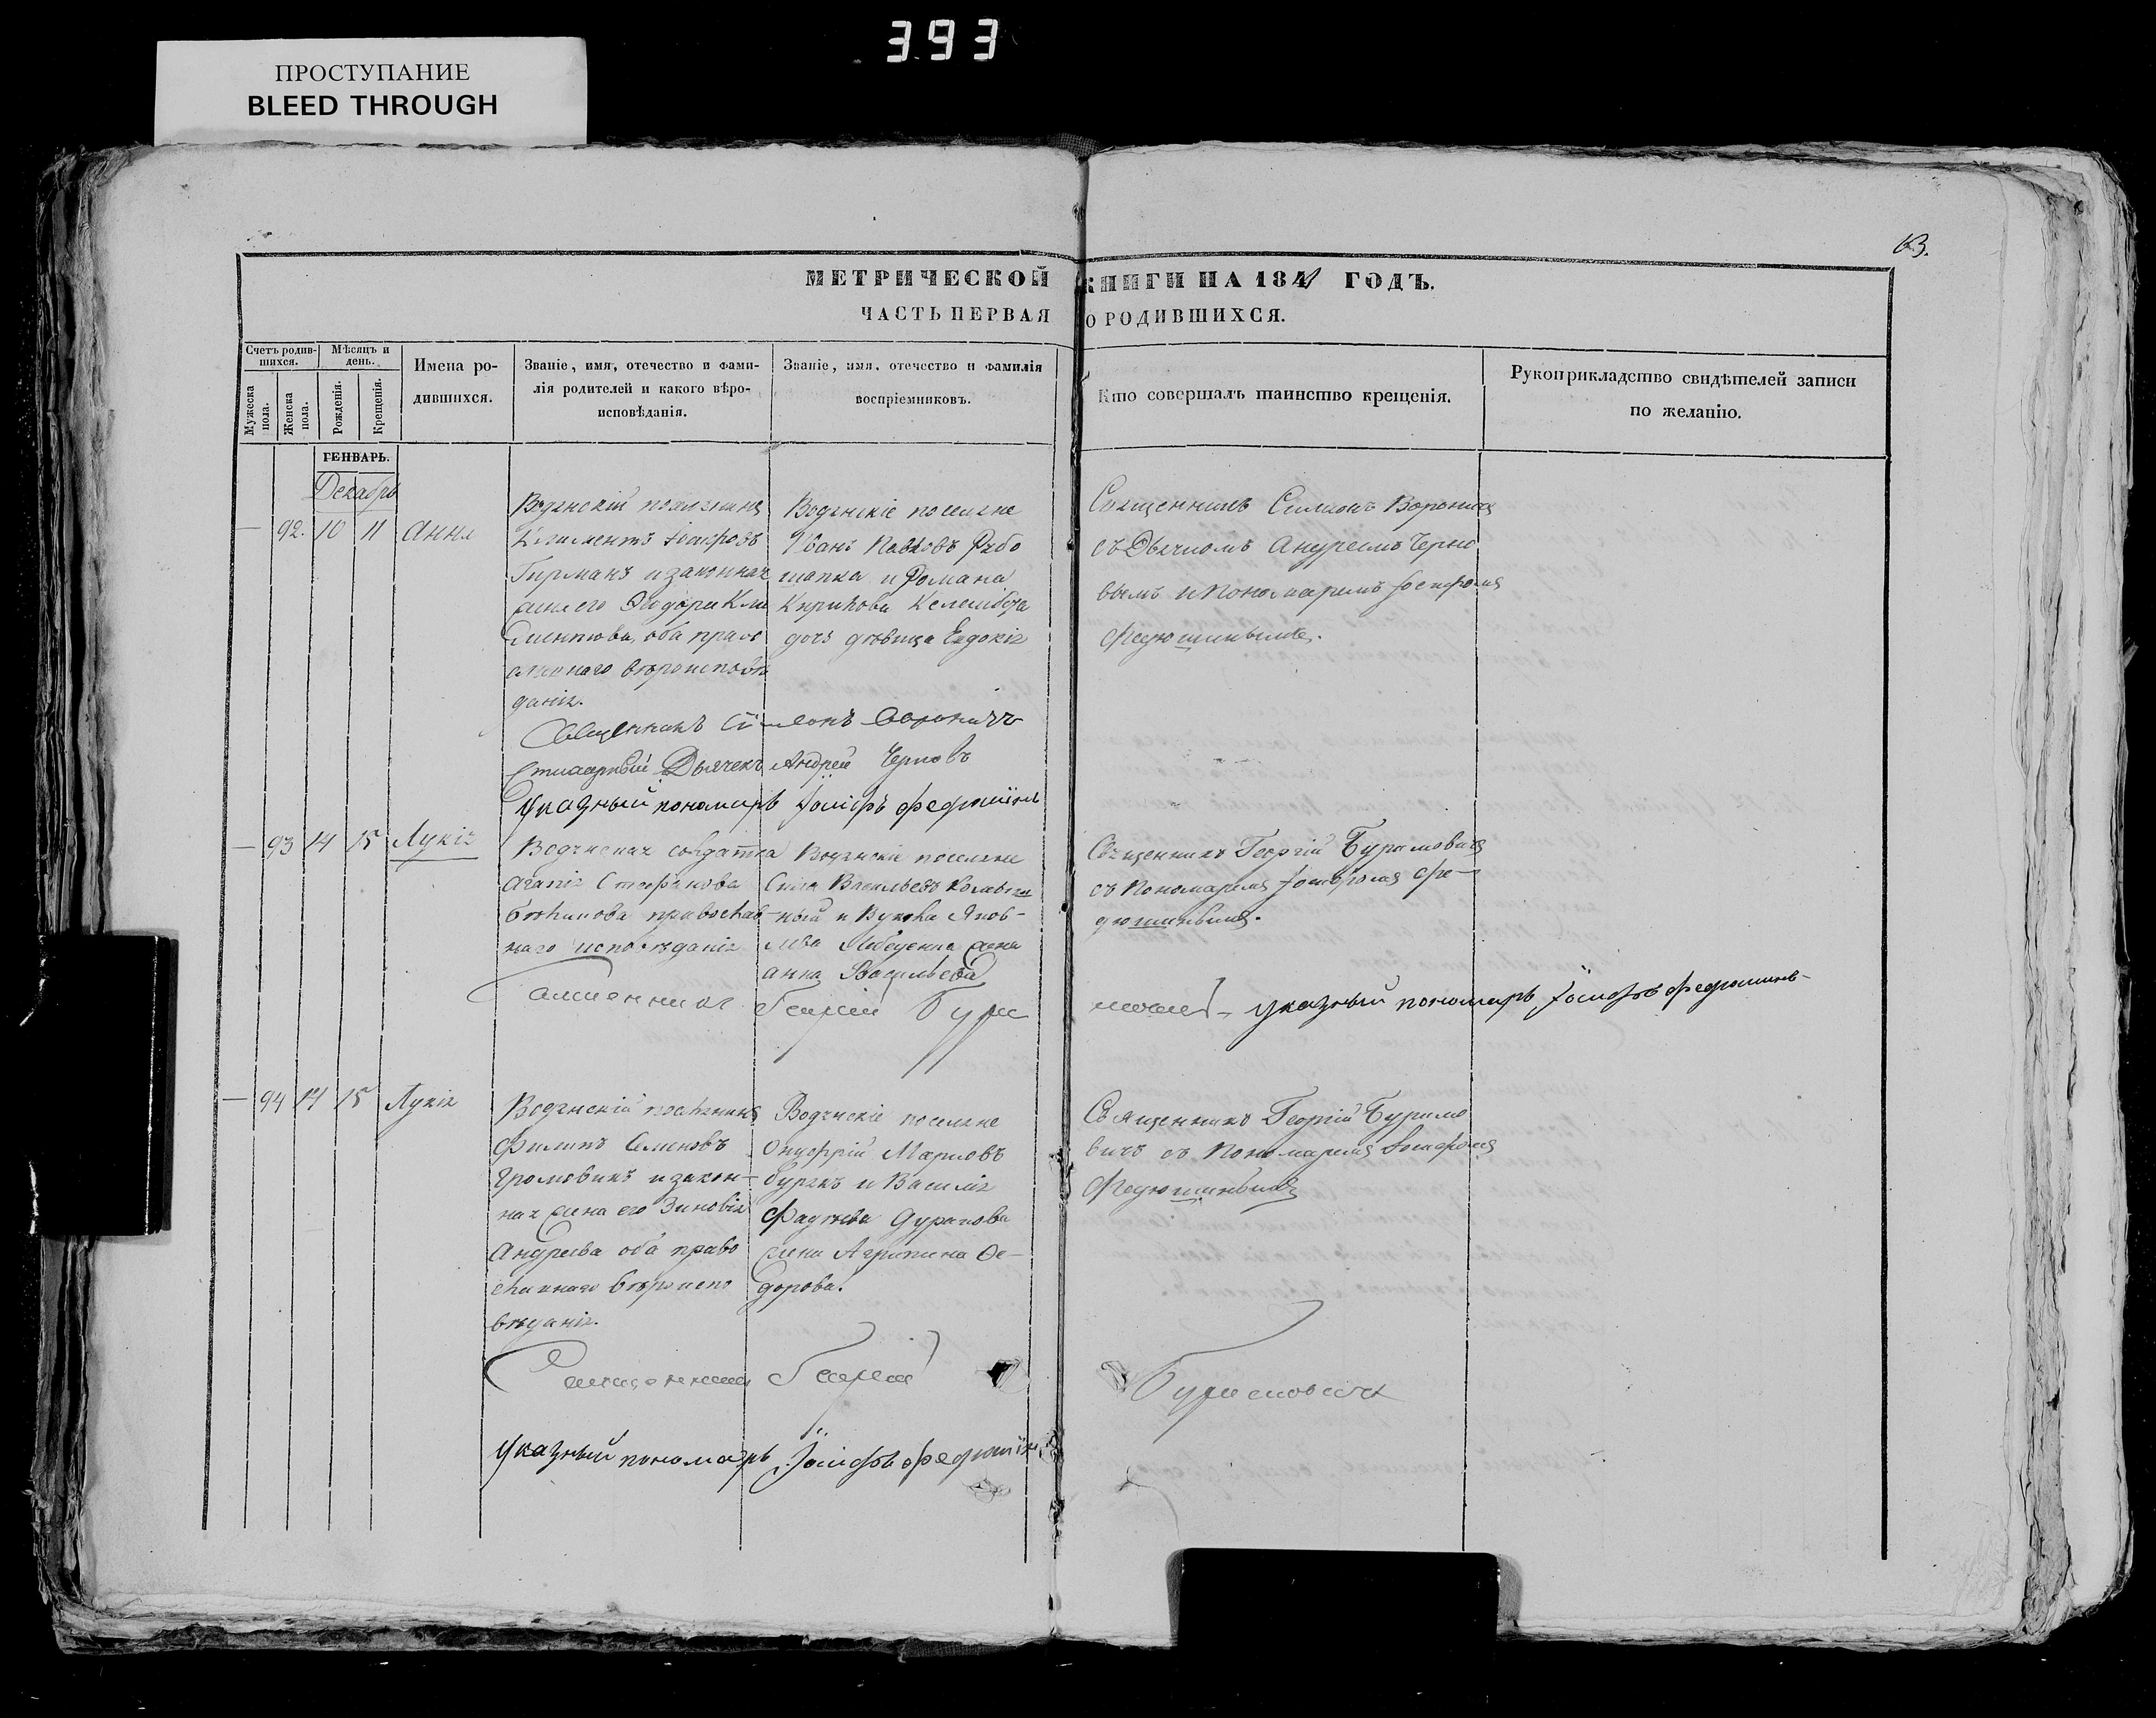 393
ПРОСТУПАНИЕ
BLEED THROUGH
63.
МЕТРИЧЕСКОЙ КНИГИ НА 1841 ГОДЪ.
ЧАСТЬ ПЕРВАЯ О РОДИВШИХСЯ.
Счетъ родив-
шихся.
Мѣсяцъ и
день.
Мужеска
пола.
Женска
пола.
Рожденія.
Крещенія.
Имена ро-
дившихся.
Званіе, имя, отечество и фами-
лія родителей и какого вѣро-
исповѣданія.
Званіе, имя, отечество и фамилія
воспріемниковъ.
Кто совершалъ таинство крещенія.
Рукоприкладство свидѣтелей записи
по желанію.
ГЕНВАРЬ.
Декабрь
— 92. 10 11 Анна
Водянскій поселянинъ
Климентъ Іосифовъ
Гирманъ и законная
жена его Климентова, оба право
славнаго вѣроисповѣ
данія.
Водянскіе поселяне
Иванъ Павловъ Рябо
шапка и Романа
Кирилова
дочь дѣвица Евдокія
Священникъ Симеонъ Воронич
съ Дьячкомъ Андреемъ Черно
вымъ и Пономаремъ Іосифомъ
Федюшинымъ.
Священникъ Симеонъ Вороничъ
Дьячекъ Андрей Черновъ
Указный пономарь Іосифъ Федюшинъ
— 93 14 15 Лукія
Водянская солдатка
Агапія Стефанова
православ-
наго исповѣданія
Водянскіе поселяне
Сила Васильевъ
ный и Яков-
лева Лебеденка жена
Анна Васильева
Священникъ Георгій Буримовичъ
съ Пономаремъ Іосифомъ Фе-
дюшинымъ.
Священникъ Георгій Бури
мовичъ Указный пономарь Іосифъ Федюшинъ
— 94 14 15 Лукія
Водянскій поселянинъ
Филипъ Семеновъ
Громовикъ и закон-
ная жена его Зиновія
Андреева оба право
славнаго вѣроиспо
вѣданія.
Водянскіе поселяне
Онуфрій Марковъ
Бурякъ и Василія
Фадѣева Дуракова
жена Агрипина Ѳе-
дорова.
Священникъ Георгій Буримо
вичъ съ Пономаремъ Іосифомъ
Федюшинымъ
Священникъ Георгій Буримовичъ
Указный пономарь Іосифъ Федюшинъ